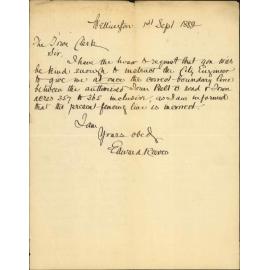 Wellington 1st Sept 1889
The Town Clerk
Sir,
I have the honor to request that you will
be kind enough to instruct the City Engineer
to give me at once the correct boundary line
between the authorised Town Belt Road & Town
acres 357 to 365 inclusive, as I am informed
that the present fencing line is incorrect.
I am
Yours obed
Edward Reeves